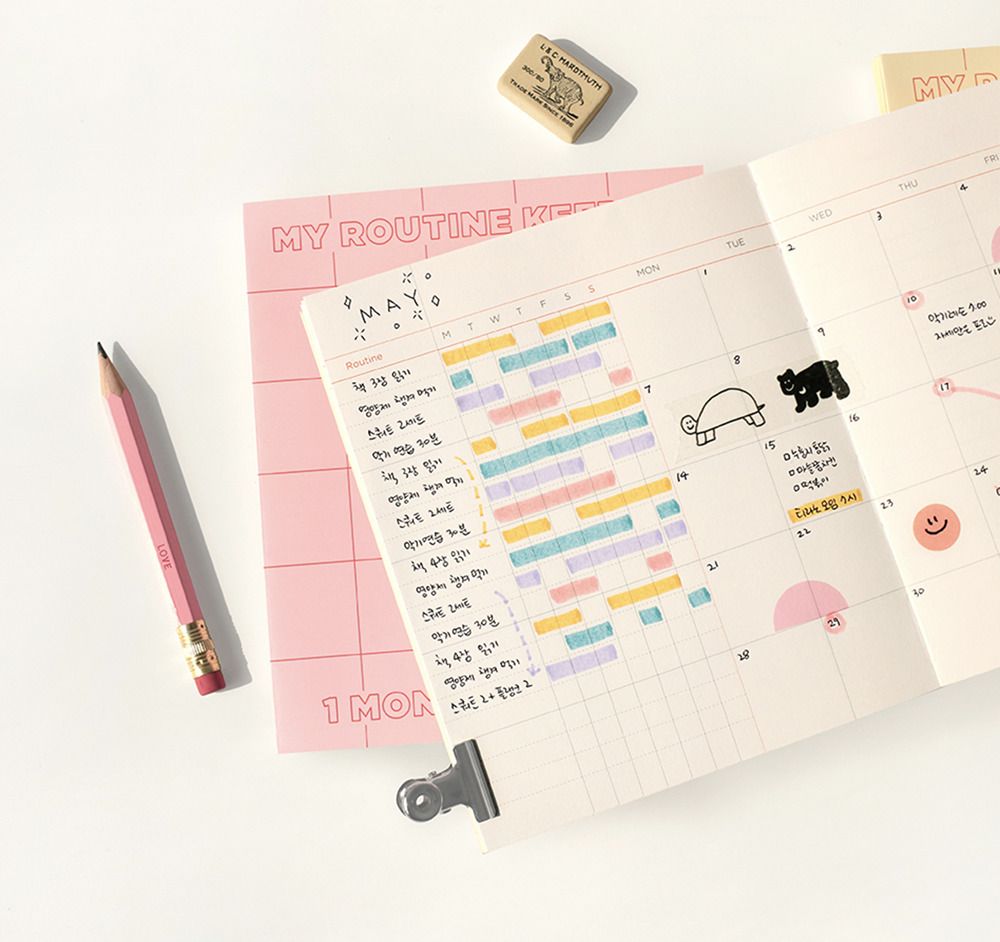 L. & C. HARDTMUTH
300/80
TRADE MARK SINCE 1896
MY R
MY ROUTINE KEE
1 MON
LOVE
MAY
Routine
M T W T F S S
MON
TUE
WED
THU
FRI
책 3장 읽기
영양제 챙겨 먹기
스쿼트 2세트
악기 연습 30분
책, 3장 읽기
영양제 챙겨 먹기
스쿼트 2세트
악기연습 30분
책, 4장 읽기
영양제 챙겨 먹기
스쿼트 2세트
악기연습 30분
책, 4장 읽기
영양제 챙겨 먹기
스쿼트 2+플랭크 2
1
2
3
4
7
8
9
10
악기레슨
14
15
떡볶이
16
17
21
22
23
24
28
29
30